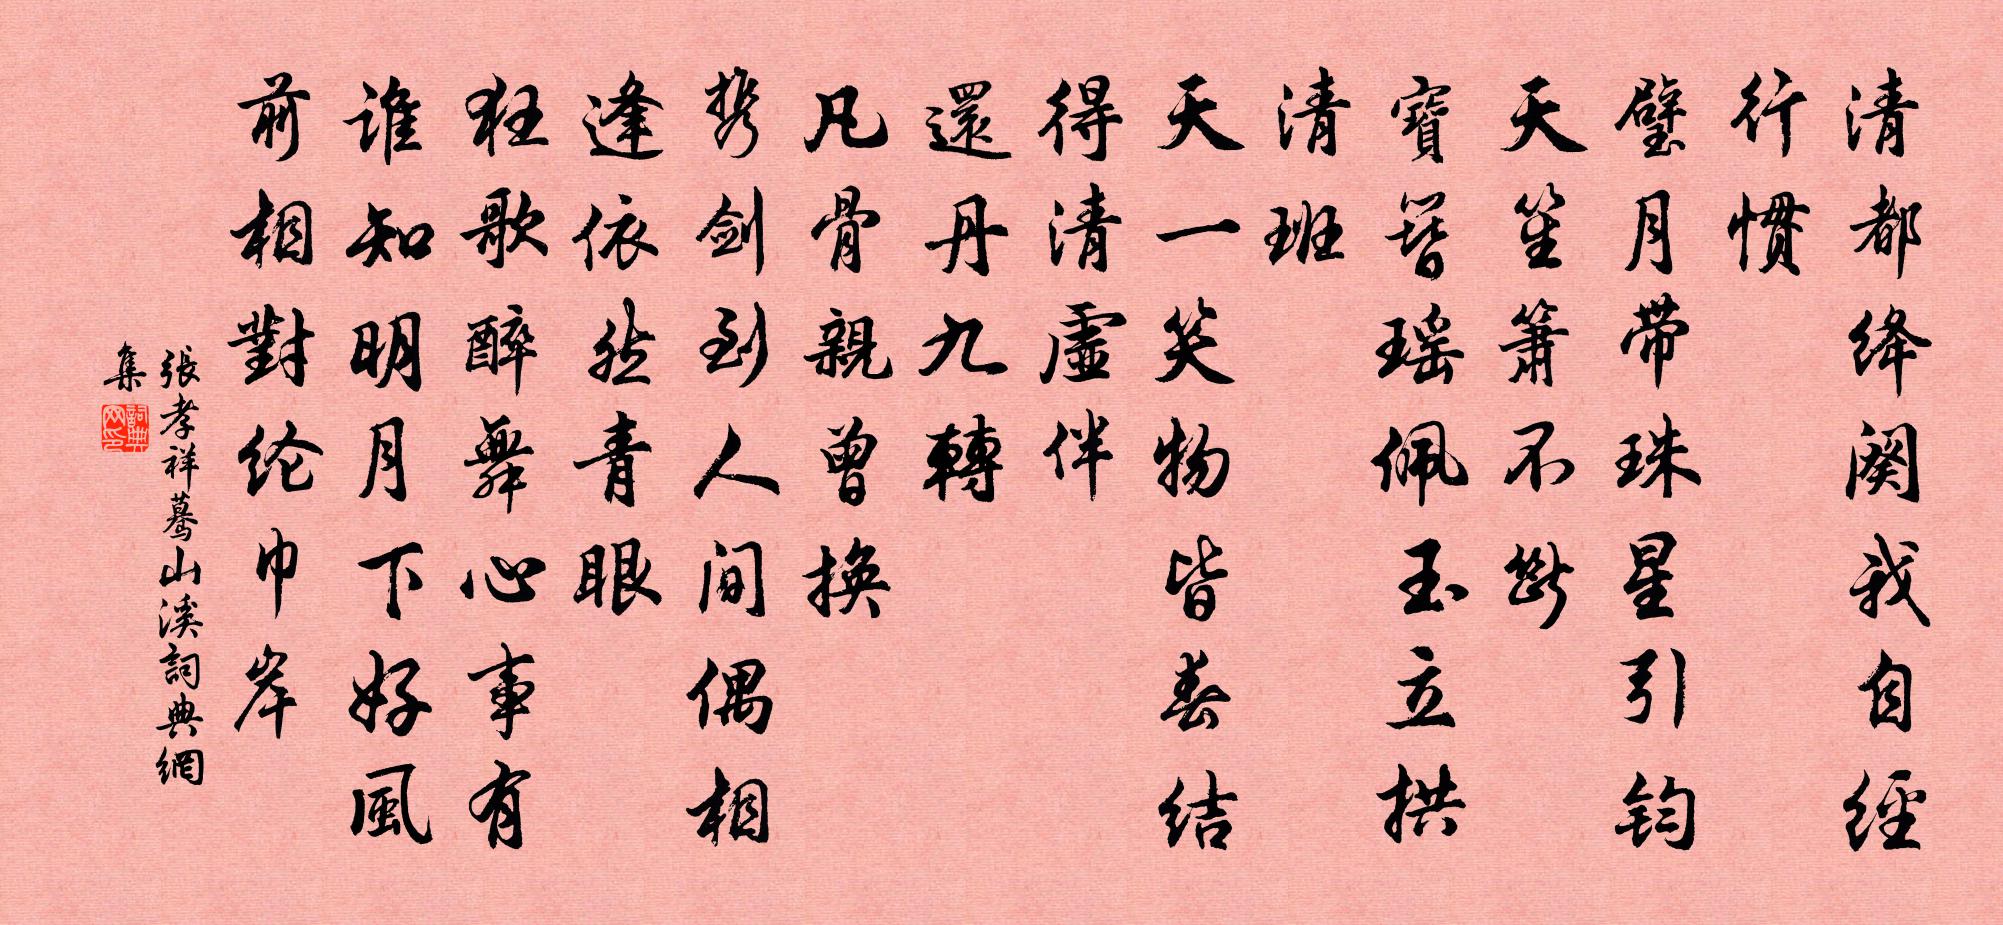 清都绛阙我自经
行惯
璧月带珠星引钧
天笙箫不断
寶簪瑶佩玉立拱
清班
天一笑物皆春结
得清虛伴
還丹九轉
凡骨親曾換
携剑到人间偶相
逢依然青眼
狂歌醉舞心事有
谁知明月下好風
前相對纶巾岸
張孝祥驀山溪詞典網
集
詞典
网印